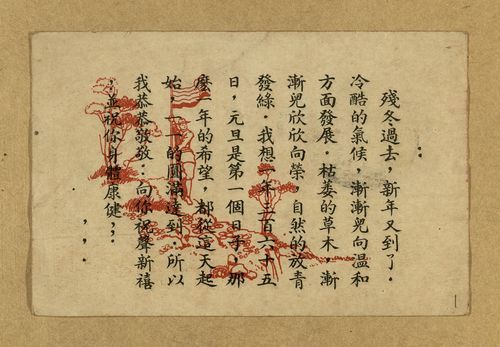 殘冬過去,新年又到了.
冷酷的氣候,漸漸兒向溫和
方面發展.枯萎的草木,漸
漸兒欣欣向榮,自然的放青
發綠.我想一年三百六十五
日,元旦是第一個日子,那
麼一年的希望,都從這天起
始,一一的圓滿達到.所以
我恭恭敬敬.向你祝聲新禧
,並祝你身體康健,,.